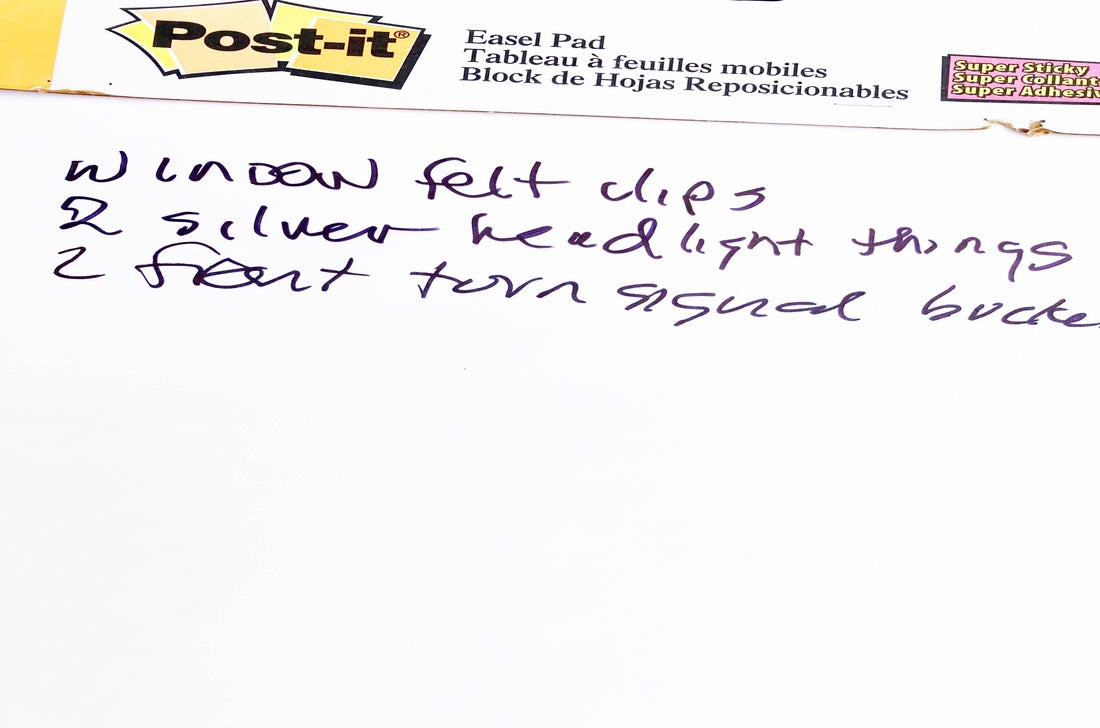 Post-it®
Easel Pad
Tableau à feuilles mobiles
Block de Hojas Reposicionables
Super Sticky
Super Collant
Super Adhesiv
window felt clips
2 silver headlight things
2 front turn signal bucke